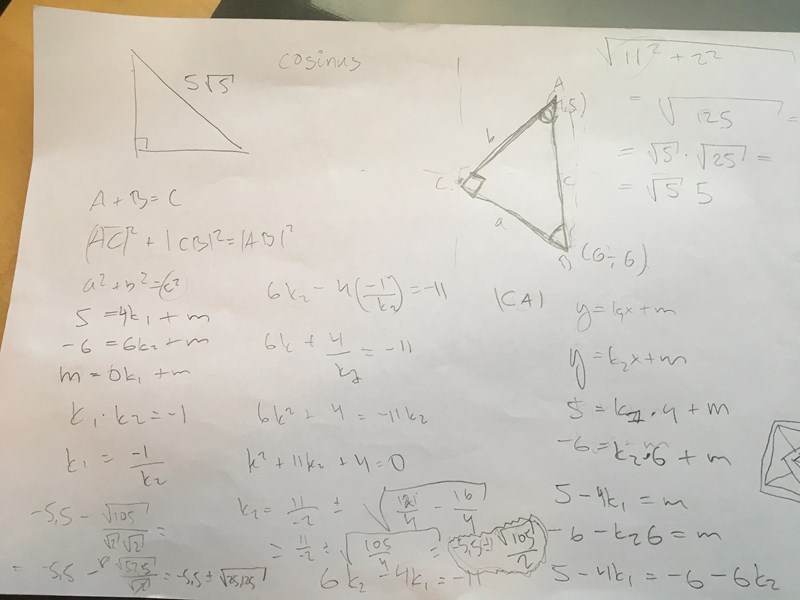 5√5
cosinus
A + B = C
|AC|² + |CB|² = |AB|²
a² + b² = c²
5 = 4k₁ + m
-6 = 6k₂ + m
m = 0k₁ + m
k₁ · k₂ = -1
k₁ = -1/k₂
-5,5 - √105/(√2 √2) =
6k₂ - 4(-1/k₂) = -11
6k + 4/k₂ = -11
6k² + 4 = -11k₂
k² + 11k₂ + 4 = 0
k₂ = 11/-2 ± √(121/4 - 16/4)
= 11/-2 ± √(105/4) = -5,5 ± √105/2
6k₂ - 4k₁ = -11
A
b
C
c
a
(6, -6)
|CA|
√(11² + 2²)
= √125 =
= √5 · √25 =
= √5 5
y = k₁x + m
y = k₂x + m
5 = k₁ · 4 + m
-6 = k₂ · 6 + m
5 - 4k₁ = m
-6 - k₂6 = m
5 - 4k₁ = -6 - 6k₂